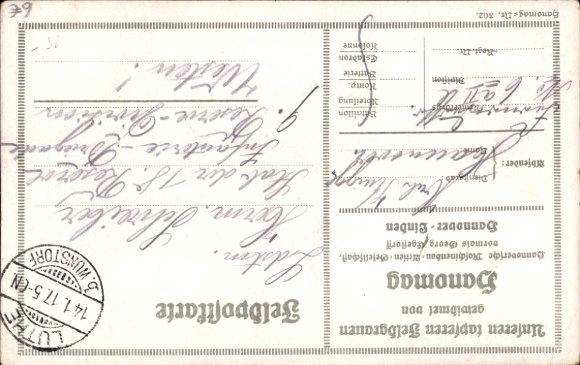 Unseren tapferen Feldgrauen
gewidmet von
Hanomag
Hannoversche Maschinenbau-Actien-Gesellschaft,
vormals Georg Egestorff
Hannover-Linden
Absender:
Dienstgrad
Name
Hannover
Bataillon
Abteilung
Komp.
Batterie
Eskadron
Kolonne
Division
Regt. Nr.
Hanomag-Nr. 302.
Feldpostkarte
Herrn Schreiber
Stab der 18. Reserve
Infanterie-Brigade
9. Reserve-Division
Westen!
LUTHE
b. WUNSTORF
14.1.17. 5-6N